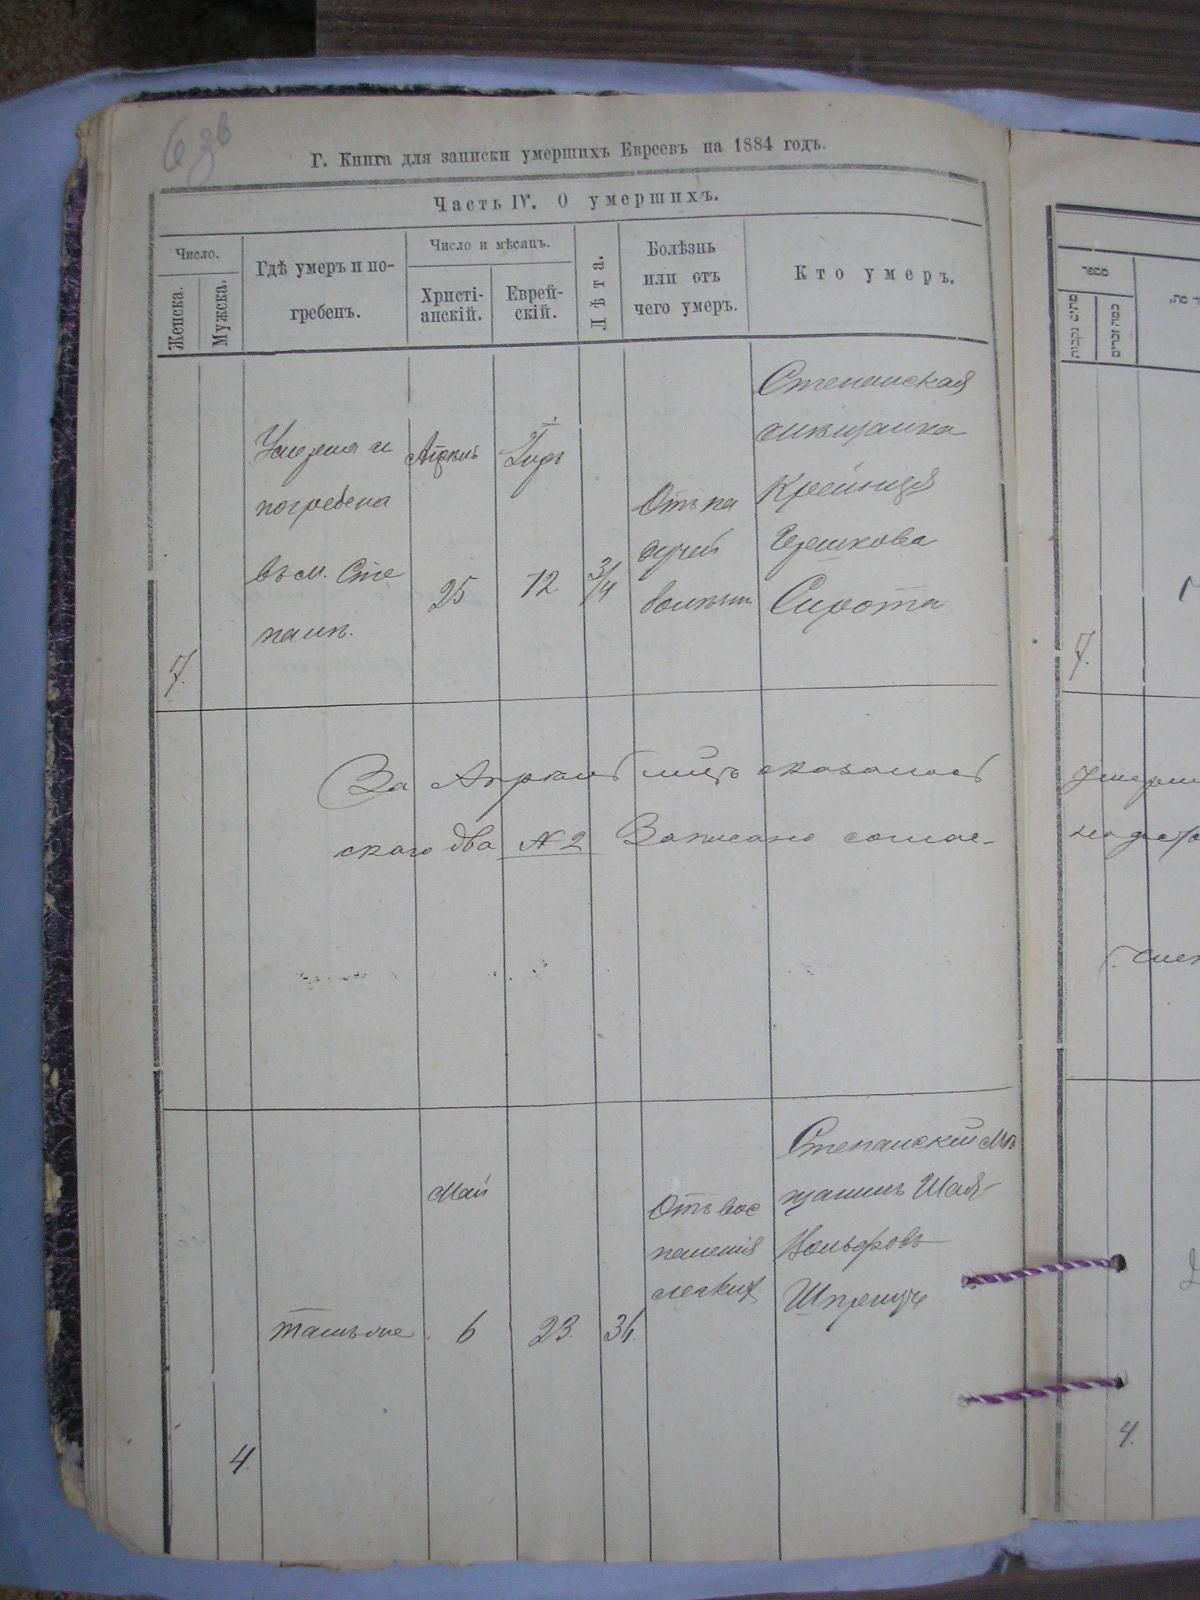 6 зв
Г. Книга для записки умершихъ Евреевъ на 1884 годъ.
Часть IV. О умершихъ.
Число.
Женска.
Мужска.
Гдѣ умеръ и по-
гребенъ.
Число и мѣсяцъ.
Христі-
анскій.
Еврей-
скій.
Лѣта.
Болѣзнь
или отъ
чего умеръ.
Кто умеръ.
7.
Умерла и
погребена
въ м. Сте
пани.
Апрель
25
Іиръ
12
3/4
Отъ па
дучей
болѣзни
Степанская
мѣщанка
Крейнця
Гершкова
Сирота
За Апрель мцъ оказалось
скаго два № 2 Записано соглас-
4.
тамъ же
Май
6
23.
36.
Отъ вос
паленія
легких
Степанскій мѣ
щанинъ Шая
Вольфовъ
Шпренцъ
מספר
7.
4.